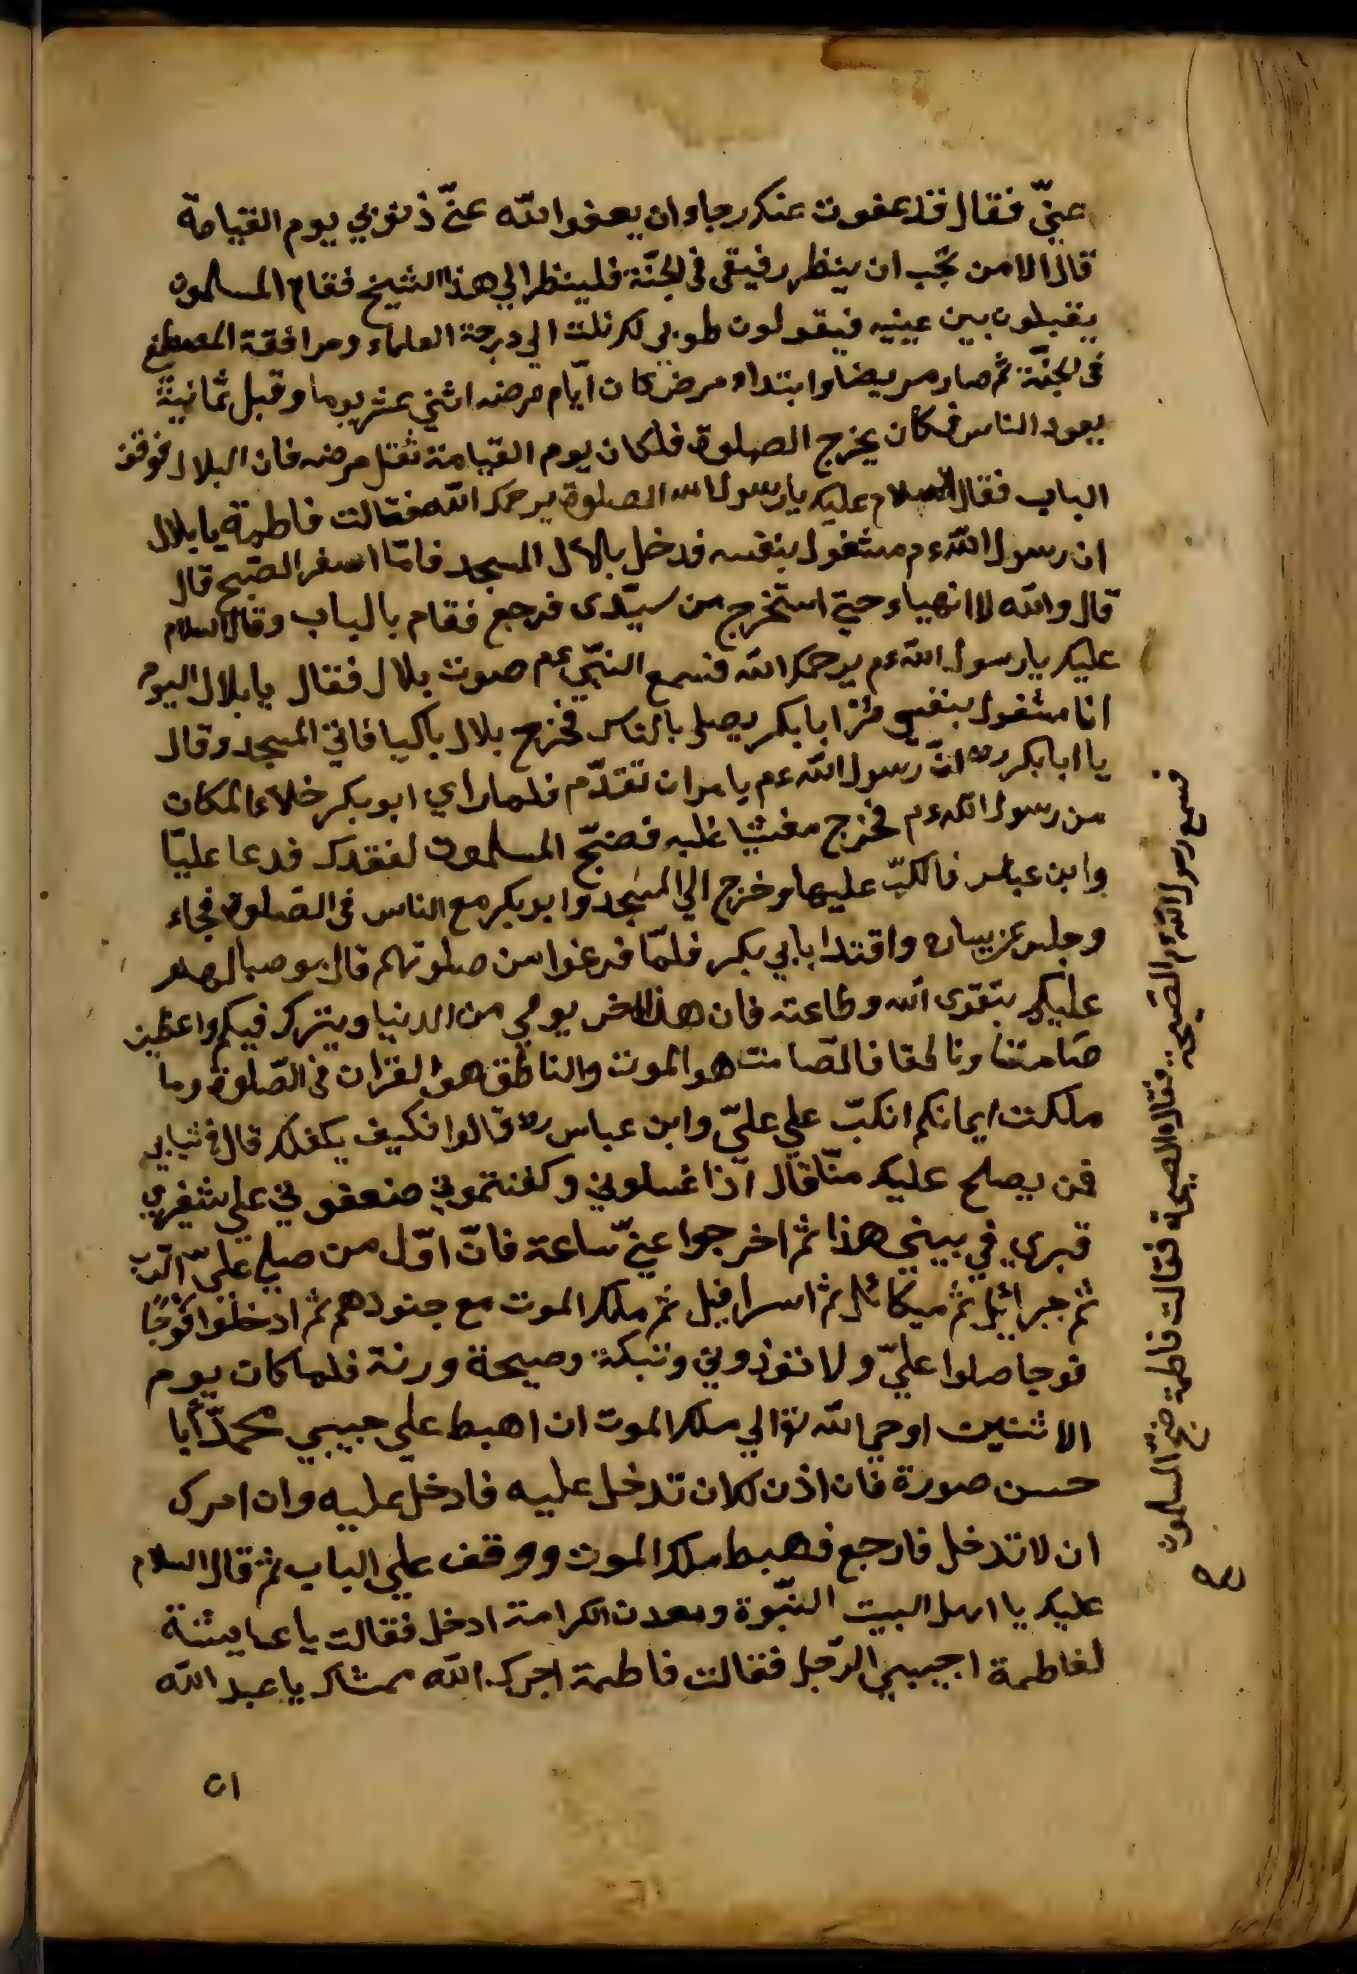 عنّي فقال قد عفوت عنك رجاء ان يعفوا الله عنّي ذنوبي يوم القيامة
قال الا من يحب ان ينظر رفيقى فى الجنّة فلينظر الي هذا الشيخ فقام المسلمون
يقبلون بين عينيه فيقولون طوبي لك نلت الي درجة العلماء ومرافقة المصطفى
فى الجنّة ثم صار مريضا وابتداء مرض كان ايّام مرضه اثني عشر يوما وقبل ثمانية
يعود الناس فكان يخرج الصلوة فلما كان يوم القيامة ثقل مرضه فان البلال فوقف
الباب فقال السلام عليك يا رسول الله الصلوة يرحمك الله فقالت فاطمة يا بلال
ان رسول الله عم مشغول بنفسه فدخل بلال المسجد فامّا اسفر الصّبح قال
قال والله لا انهياء حتي استخرج من سيّدى فرجع فقام بالباب وقال السلام
عليك يا رسول الله عم يرحمك الله فسمع النبّي عم صوت بلال فقال يا بلال اليوم
انا مشغول بنفسي مُرْ ابا بكر يصلي بالناس فخرج بلال باكيا فاتي المسجد وقال
يا ابا بكر رض انّ رسول الله عم يامر ان تقدّم فلما راي ابو بكر خلاء المكان
من رسول الله عم فخرج مغشيا عليه فضجّ المسلمون لفقدك فدعا عليّا
وابن عباس فالكبّ عليهما وخرج الي المسجد وابو بكر مع الناس فى الصّلوة فجاء
وجلس عن يساره واقتدا بابي بكر فلمّا فرغوا من صلوتهم قال
عليكم بتقوى الله وطاعته فان هذا اخر يومي من الدنيا ويترك فيكم واعظين
صامتا وناطقا فالصّامت هو الموت والناطق هو القران فى الصّلوة وما
ملكت ايمانكم انكبّ علي عليّ وابن عباس رض قالوا فكيف يكفنك قال فى ثيابي
فمن يصلح عليك منّا قال اذا غسلوني وكفنتموني ضعفوني علي شفير
قبري في بيتي هذا ثم اخرجوا عنّي ساعة فانّ اوّل من صلي عليّ الرّب
ثم جبرائيل ثم ميكائل ثم اسرافيل ثم ملك الموت مع جنودهم ثم ادخلوا فوجًا
فوجا صلوا عليّ ولا تؤذوني وتبكة وصيحة ورنة فلما كان يوم
الاثنين اوحي الله تع الي ملك الموت ان اهبط علي حبيبي محمدّ بًا
حسن صورة فان اذن لك ان تدخل عليه فادخل عليه وان امرك
ان لا تدخل فارجع فهبط ملك الموت ووقف علي الباب ثم قال السلام
عليك يا اهل البيت النبّوة ومعدن الكرامة ادخل فقالت يا عايشة
لفاطمة اجيبي الرّجل فقالت فاطمة اجرك الله ممشاك يا عبد الله
فسمع رسول الله عم الصّيحه فقال ما الصيحة فقالت فاطمة ضجّ المسلمون